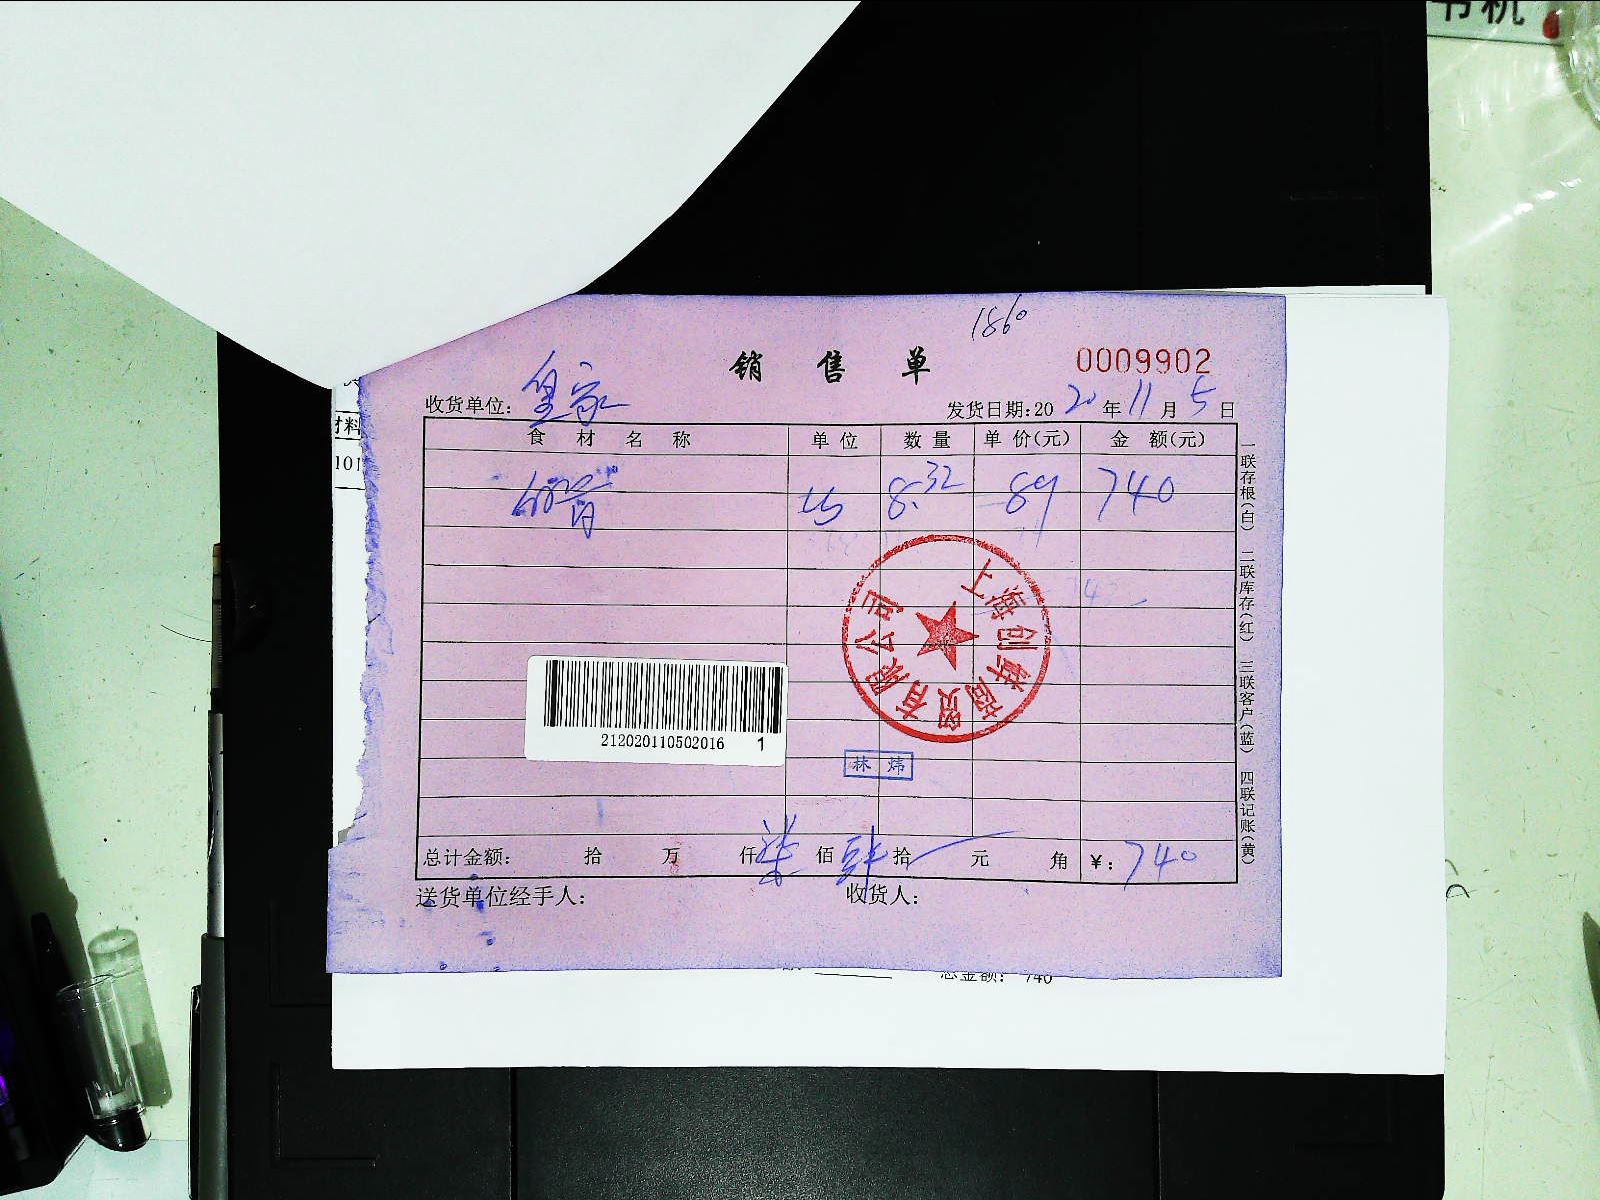 书机
1860
销售单
0009902
收货单位: 皇家
发货日期: 2020年11月5日
材料
101
食材名称 单位 数量 单价(元) 金额(元)
8.32 89 740
一联存根(白) 二联库存(红) 三联客户(蓝) 四联记账(黄)
上海创鲜商贸有限公司
212020110502016 1
林炜
总计金额: 拾 万 仟 柒 佰 肆 拾 元 角 ¥: 740
送货单位经手人: 收货人:
总金额: 740